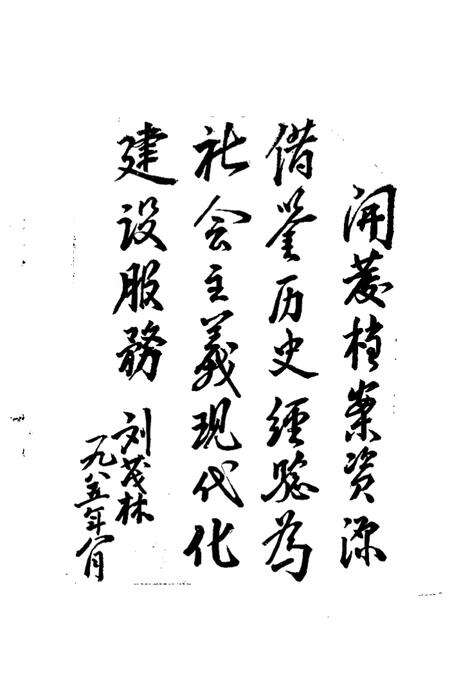 开发档案资源
借鉴历史经验为
社会主义现代化
建设服務
刘茂林
一九八五年八月